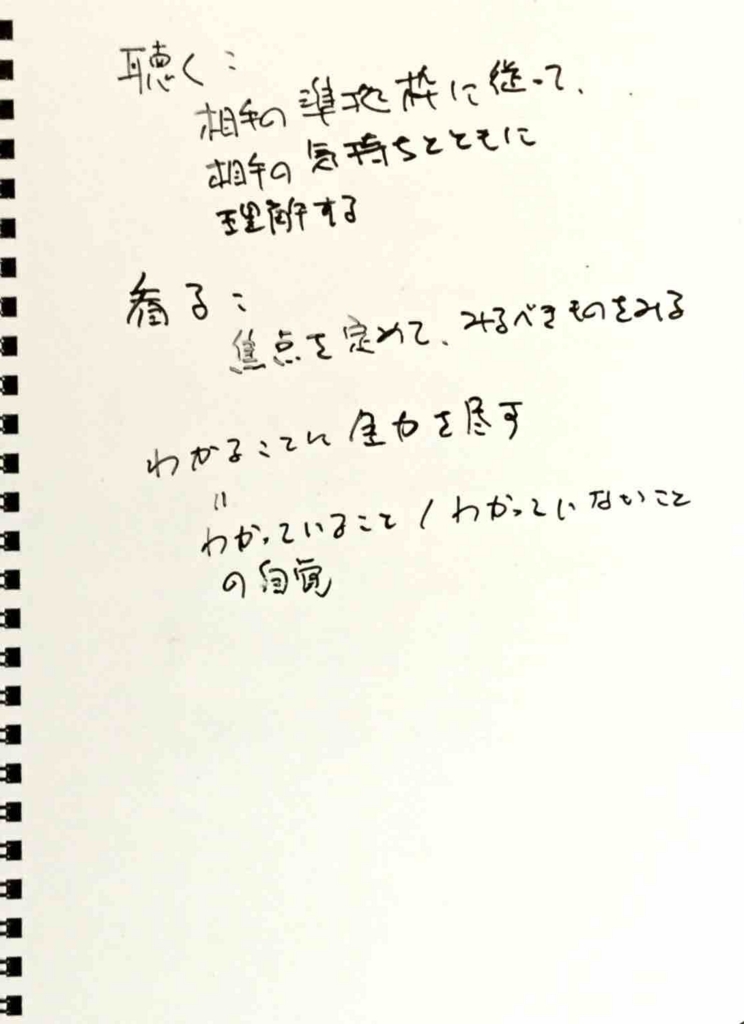 聴く：
相手の準拠枠に従って、
相手の気持ちとともに
理解する
看る：
焦点を定めて、みるべきものをみる
わかることに全力を尽す
＝
わかっていること/わかっていないこと
の自覚